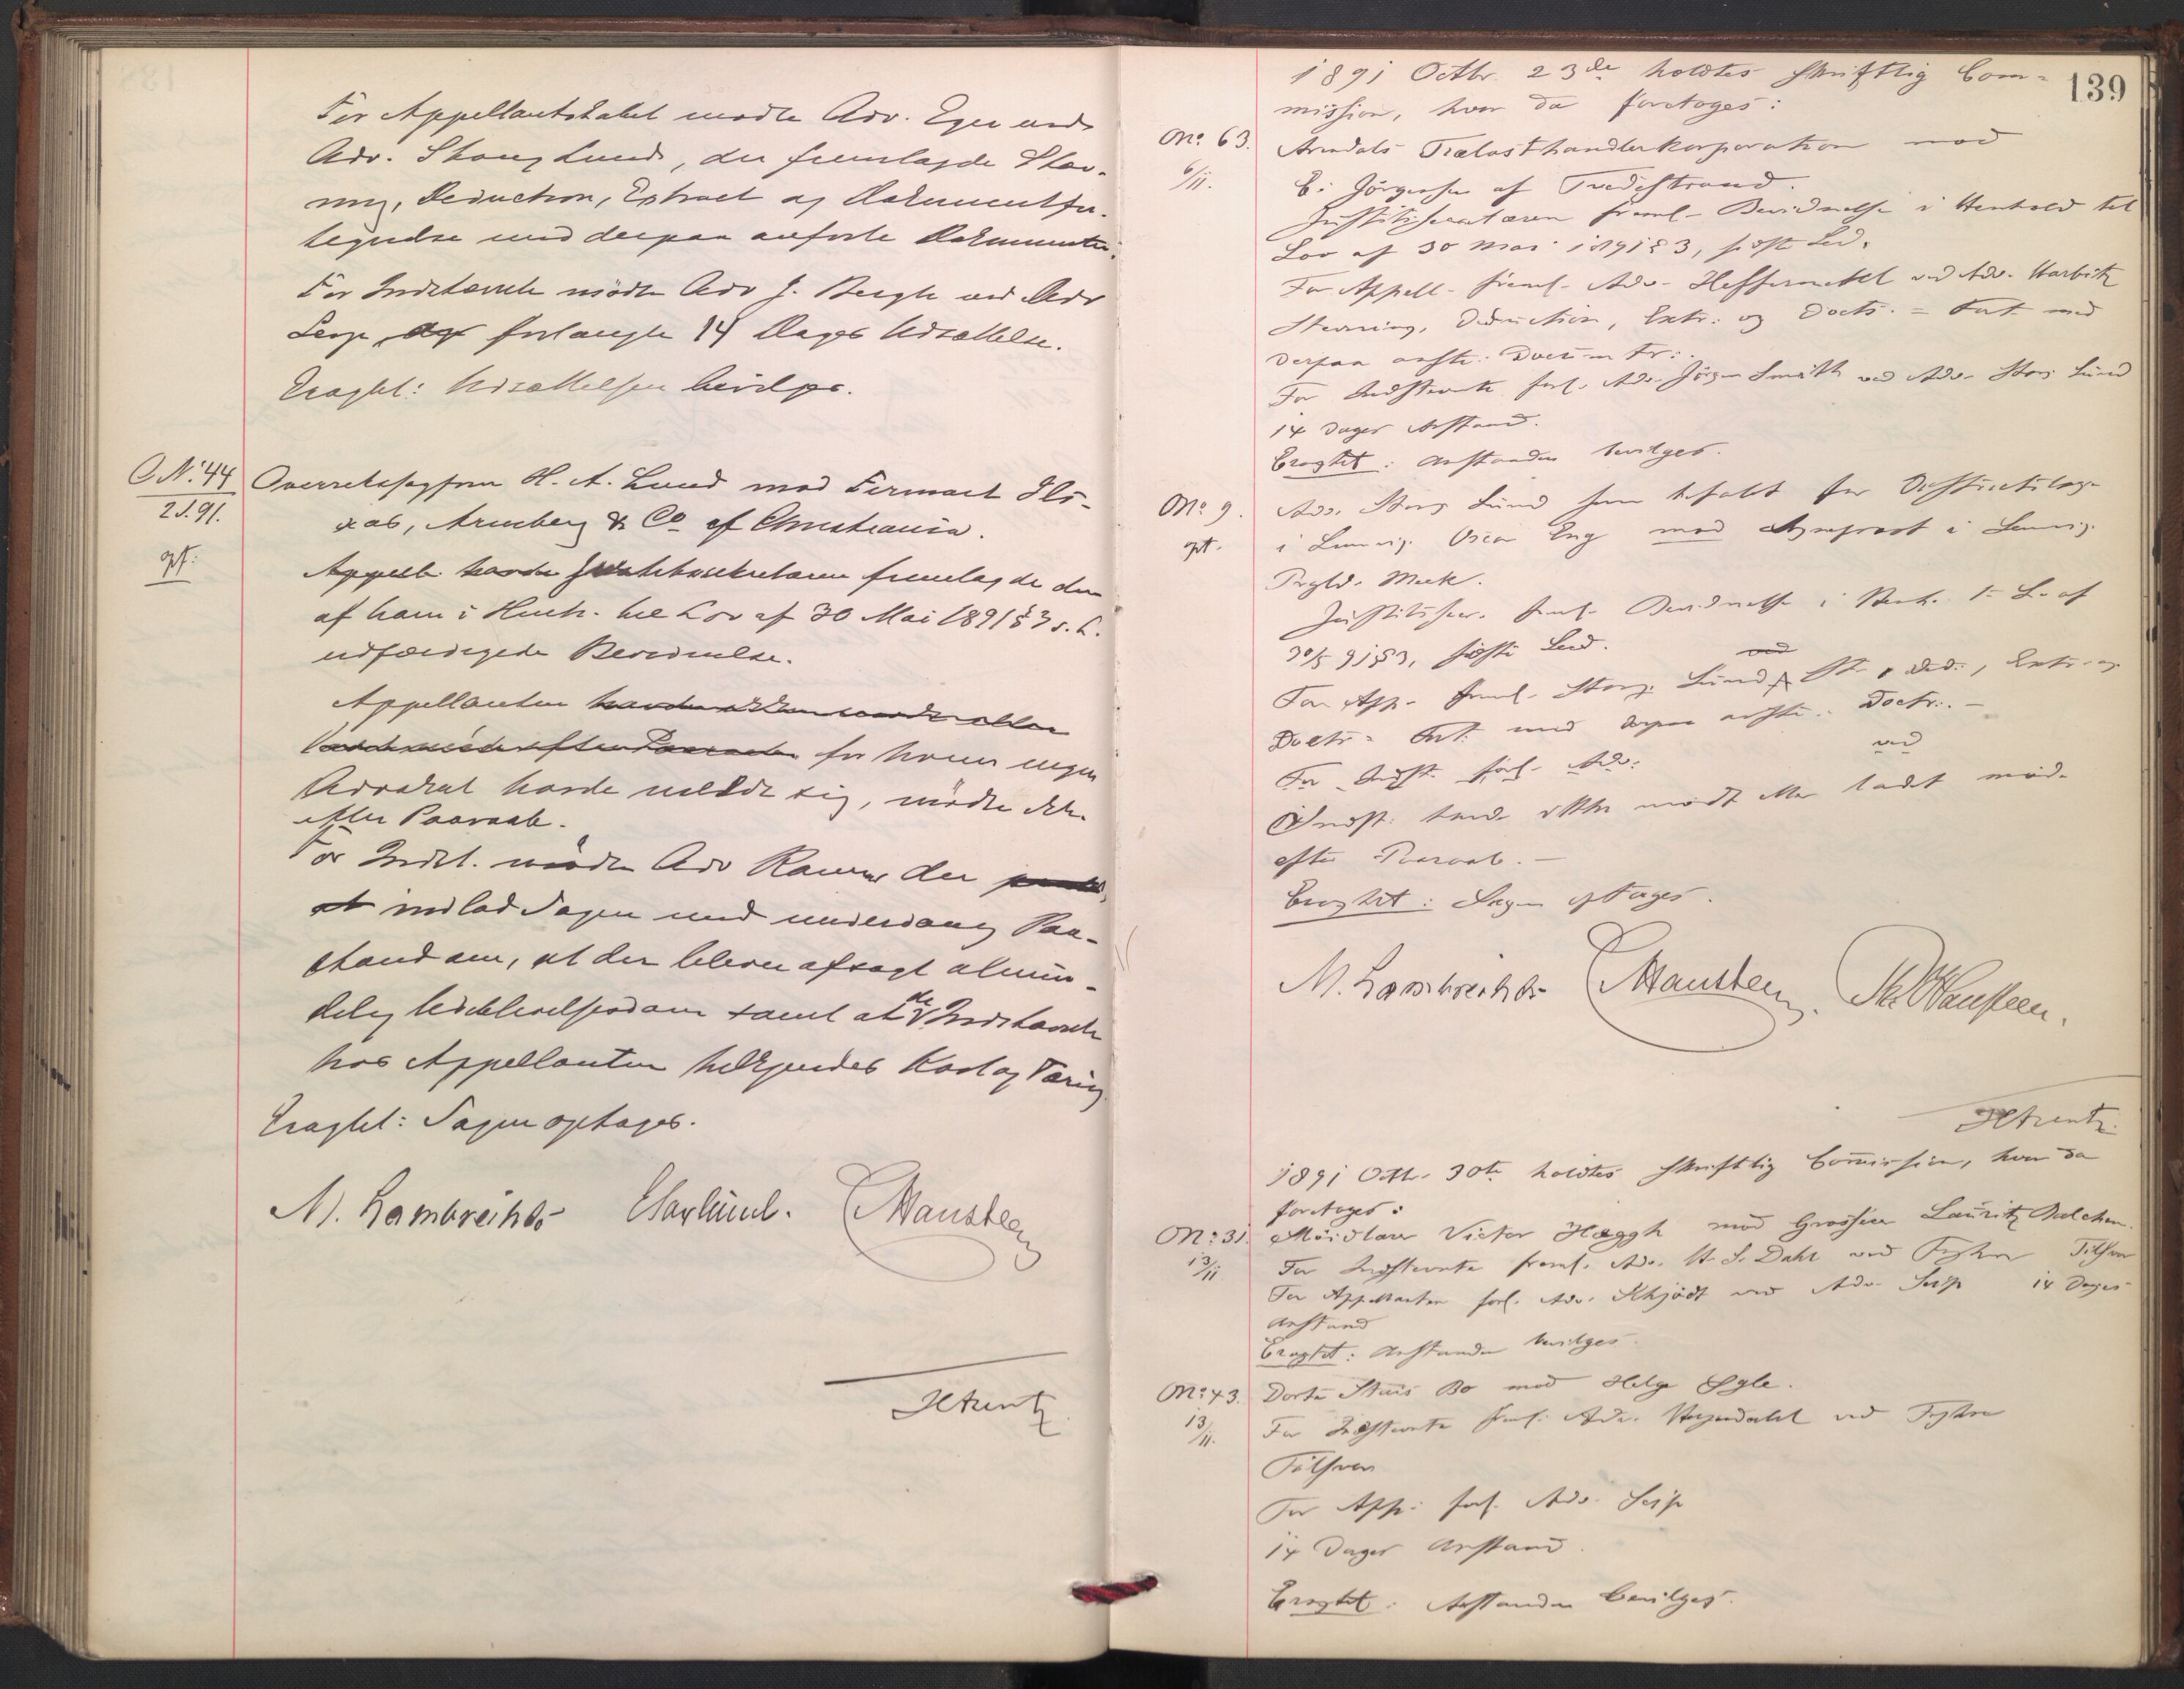 For Appellantskabet mødte Adv. Eger ved
Adv. Stang Lund, der fremlagde Stæv-
ning, Deduction, Extract og Dokumentfor-
tegnelse med derpaa anførte Dokumenter.
For Indstævnte mødte Adv J. Bergh ved Adv
Seip, og forlangte 14 Dages Udsættelse.
Eragtet: Udsættelsen bevilges.
O N: 44
2 S. 91.
opt.
Overretssagfører H. A. Lund mod Firmaet
Arneberg & Co af Christiania.
Appell. havde Justitssekretæren fremlagde den
af ham i Henh. til Lov af 30 Mai 1891 § 3 s. L.
udfærdigede Bevidnelse.
Appellanten havde ikke mødt eller
ladet møde efter Paaraab for hvem ingen
Advokat havde meldt sig, mødte ikke
efter Paaraab.
For Indst. mødte Adv der
at indlod Sagen med underdanig Paa-
stand om, at der bliver afsagt almin-
delig Udeblivelsesdom samt at de Indstævnte
hos Appellanten tilkjendes Kost og Tæring.
Eragtet: Sagen optages.
M. Lambrechts C Hansteen
HArentz
139
1891 Octbr. 23de holdtes skriftlig Com-
mission, hvor da foretoges:
No. 63.
6/11.
Arendals Trælasthandlerkorporation mod
E. Jörgensen af Tvedestrand.
Justitssecretæren freml. Bevidnelse i Henhold til
Lov af 30 Mai 1891 § 3, sidste Led.
For Appell. freml. Adv. Heffermehl ved Adv. Harbitz
Stævning, Deduction, Extr. og Docts. = Fort. med
derpaa anfte. Docum tr:.
For Indstevnte forl. Adv. Smith ved Adv. Stang Lund
14 Dages Anstand.
Eragtet: Anstanden bevilges.
No. 9.
opt.
Adv. Stang Lund som befalt for
i Oscar Eng mod i
Justitssecr. freml. Bevidnelse i Henh. t. L. af
30/5 91 § 3, sidste Led.
For App. freml. Stang Lund ved St., Ded., Extr. og
Doctr = Fort. med derpaa anfte. Doctr:. -
For Indst. forl. Adv: ved
Indst. havde ikke mødt eller ladet møde
efter Paaraab. -
Eragtet: Sagen optages.
M. Lambrechts C Hansteen. Hansteen.
HArentz.
1891 Octbr. 30te holdtes skriftlig Commission, hvor da
foretoges:
No: 31.
13/11
Victor Hæggh mod Grosserer Lauritz Balchen.
For Indstevnte freml. Adv. H. S. Dahl ved
For Appellanten forl. Adv. Skjödt ved Adv. Seip 14 Dages
Anstand
Eragtet: Anstanden bevilges.
No: 43.
13/11.
Bo mod Helge
For Indstevnte freml. Adv. ved
For App: forl. Adv. Seip
14 Dages Anstand.
Eragtet: Anstanden bevilges.